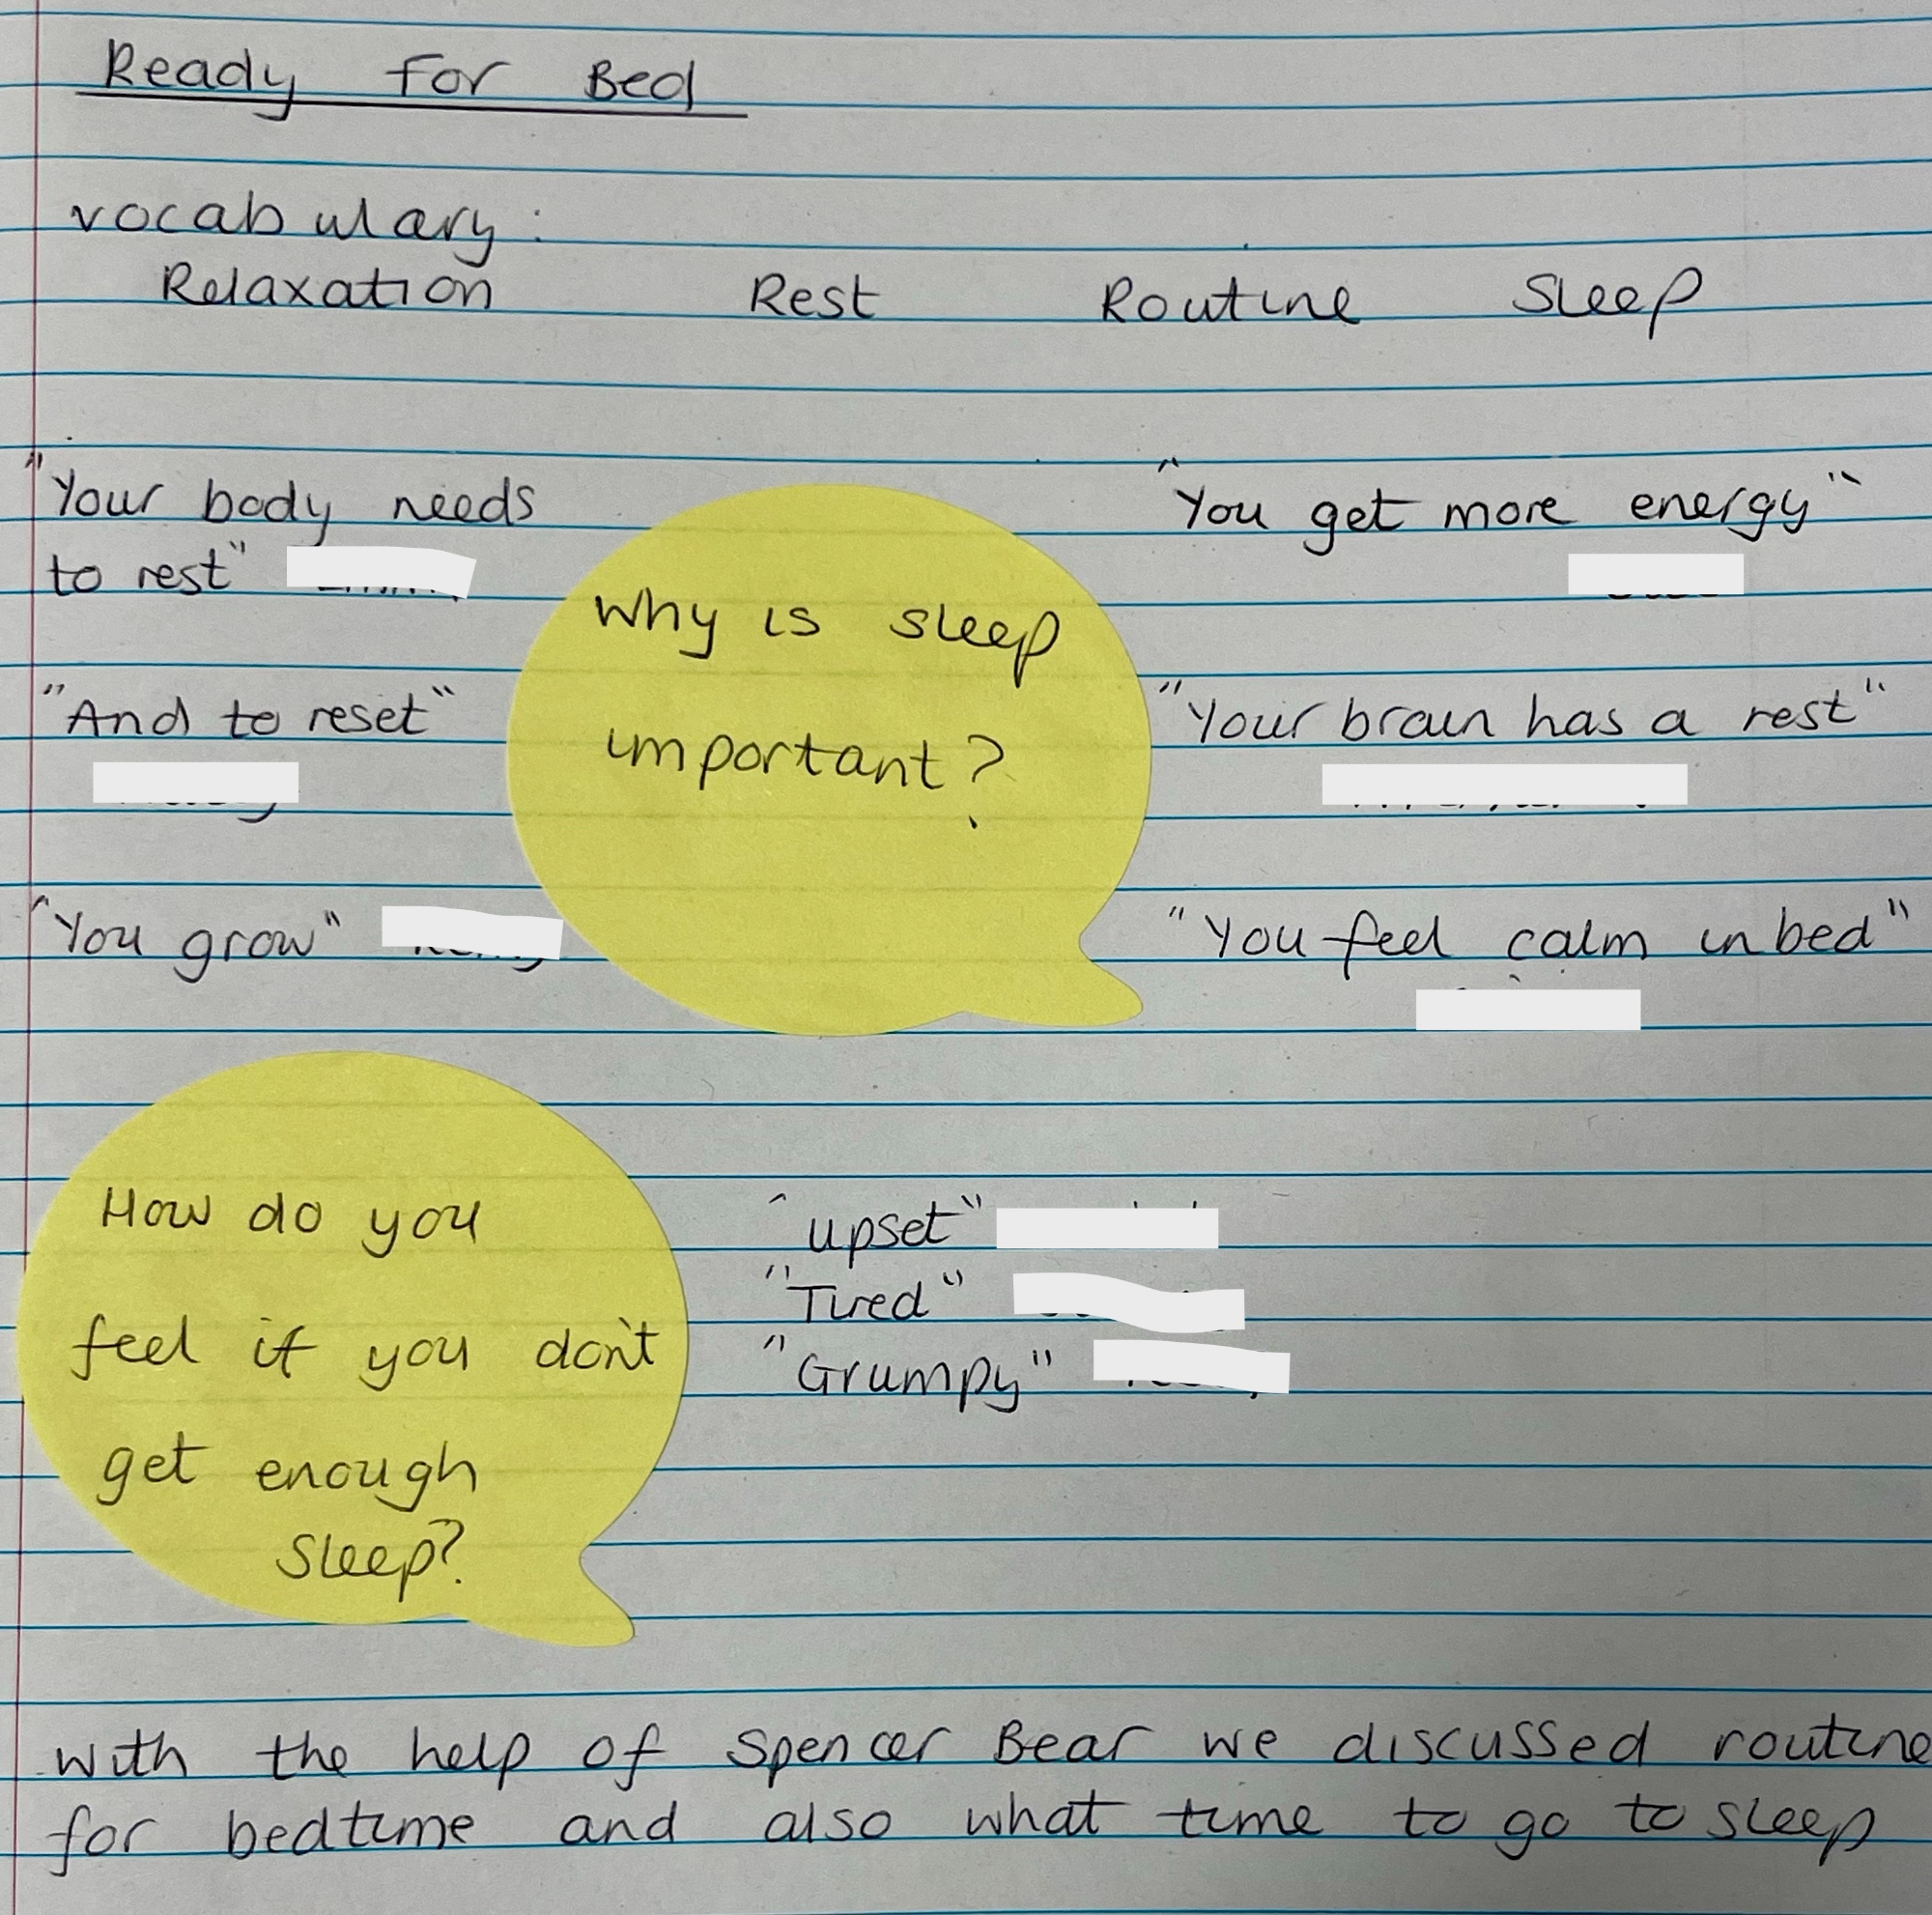 Ready for Bed
vocabulary:
Relaxation Rest Routine Sleep
"Your body needs
to rest"
"And to reset"
"You grow"
Why is sleep
important?
"You get more energy"
"Your brain has a rest"
"You feel calm in bed"
How do you
feel if you don't
get enough
Sleep?
"upset"
"Tired"
"Grumpy"
with the help of Spencer Bear we discussed routine
for bedtime and also what time to go to sleep